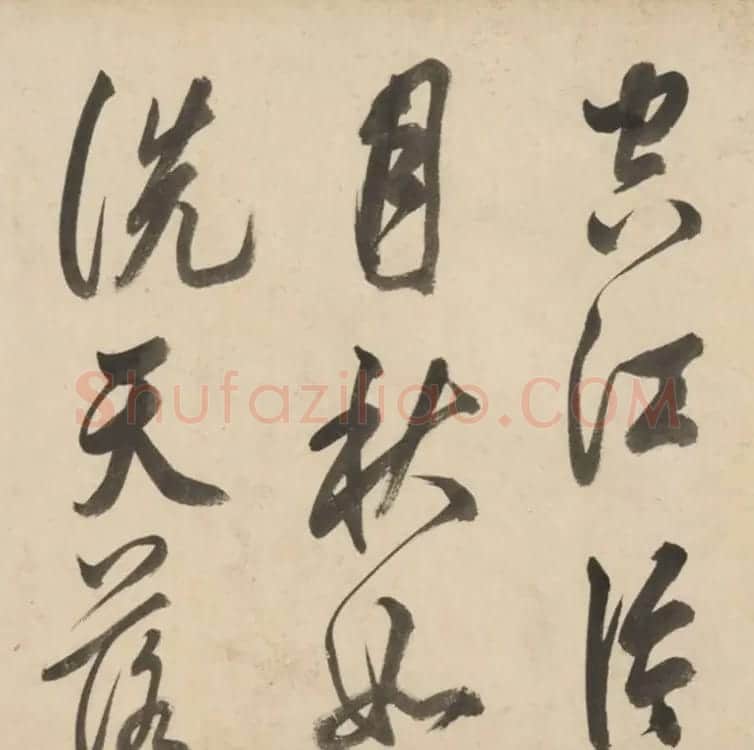 江
月秋如
洗天落
Shufaziliao.COM